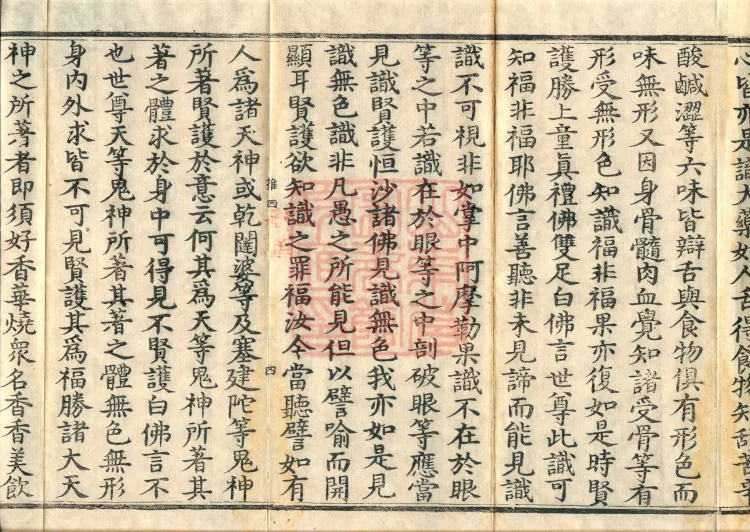 心皆亦是識大藥如人舌得食物知甜苦辛
酸鹹澀等六味皆辯舌與食物俱有形色而
味無形又因身骨髓肉血覺知諸受骨等有
形受無形色知識福非福果亦復如是時賢
護勝上童真禮佛雙足白佛言世尊此識可
知福非福耶佛言善聽非未見諦而能見識
識不可視非如掌中阿摩勒果識不在於眼
等之中若識在於眼等之中剖破眼等應當
見識賢護恒沙諸佛見識無色我亦如是見
識無色識非凡愚之所能見但以譬喻而開
顯耳賢護欲知識之罪福汝今當聽譬如有
推四
四
人為諸天神或乾闥婆等及塞建陀等鬼神
所著賢護於意云何其為天等鬼神所著其
著之體求於身中可得見不賢護白佛言不
也世尊天等鬼神所著其著之體無色無形
身內外求皆不可見賢護其為福勝諸大天
神之所著者即須好香華燒眾名香香美飲